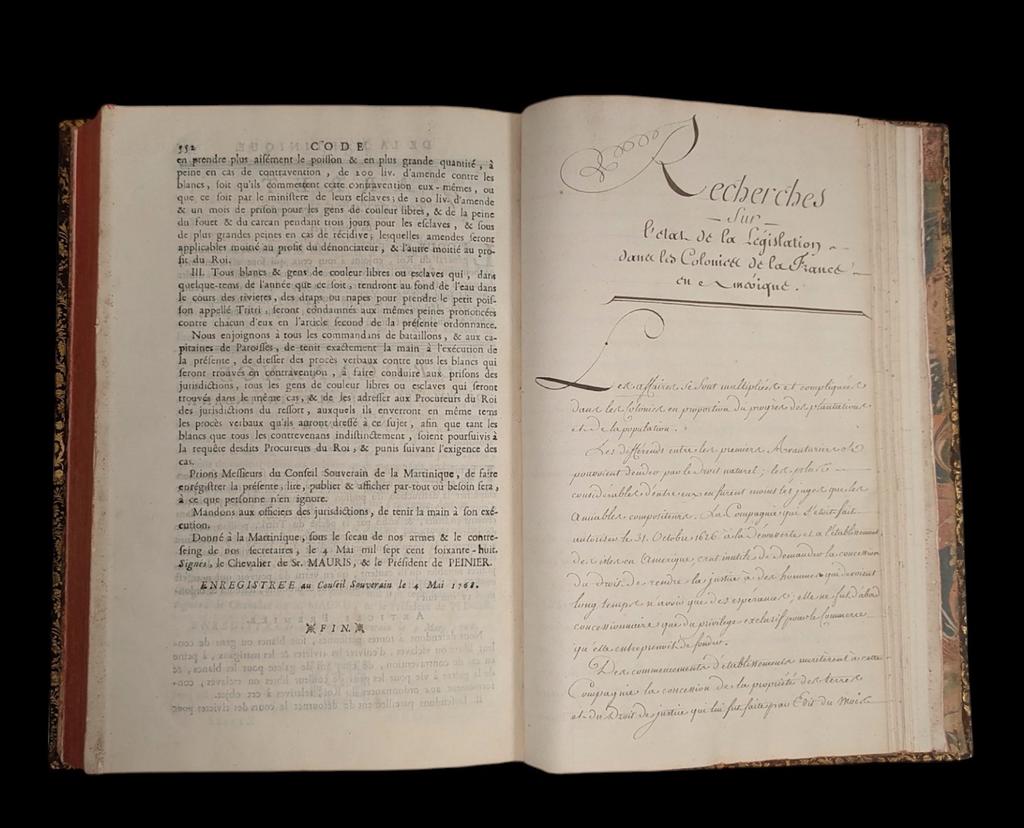 552 CODE
en prendre plus aisément le poisson & en plus grande quantité, à
peine en cas de contravention, de 100 liv. d'amende contre les
blancs, soit qu'ils commettent cette contravention eux-mêmes, ou
que ce soit par le ministere de leurs esclaves; de 100 liv. d'amende
& un mois de prison pour les gens de couleur libres, & de la peine
du fouet & du carcan pendant trois jours pour les esclaves, & sous
de plus grandes peines en cas de récidive; lesquelles amendes seront
applicables moitié au profit du dénonciateur, & l'autre moitié au pro-
fit du Roi.
III. Tous blancs & gens de couleur libres ou esclaves qui, dans
quelque-tems de l'année que ce soit, tendront au fond de l'eau dans
le cours des rivieres, des draps ou napes pour prendre le petit pois-
son appellé Tritri, seront condamnés aux mêmes peines prononcées
contre chacun d'eux en l'article second de la présente ordonnance.
Nous enjoignons à tous les commandans de bataillons, & aux ca-
pitaines de Paroisses, de tenir exactement la main à l'exécution de
la présente, de dresser des procès verbaux contre tous les blancs qui
seront trouvés en contravention, à faire conduire aux prisons des
jurisdictions, tous les gens de couleur libres ou esclaves qui seront
trouvés dans le même cas, & de les adresser aux Procureurs du Roi
des jurisdictions du ressort, auxquels ils enverront en même tems
les procès verbaux qu'ils auront dressé à ce sujet, afin que tant les
blancs que tous les contrevenans indistinctement, soient poursuivis à
la requête desdits Procureurs du Roi, & punis suivant l'exigence des
cas.
Prions Messieurs du Conseil Souverain de la Martinique, de faire
enrégistrer la présente, lire, publier & afficher par-tout où besoin sera,
à ce que personne n'en ignore.
Mandons aux officiers des jurisdictions, de tenir la main à son exé-
cution.
Donné à la Martinique, sous le sceau de nos armes & le contre-
seing de nos secretaires, le 4 Mai mil sept cent soixante-huit.
Signés, le Chevalier de St. MAURIS, & le Président de PEINIER.
ENREGISTRÉE au Conseil Souverain le 4 Mai 1768.
FIN.
1.
Recherches
Sur
l'etat de la Législation
dans les Colonies de la France
en Amérique.
Les affaires se sont multipliées et compliquées
dans les Colonies en proportion du progrès des plantations
et de la population.
Les differends entre les premiers Avanturiers
pouvoient par le droit naturel; les plus
considérables d'entre eux en furent moins les juges que les
amiables compositeurs. La Compagnie qui s'etoit fait
autoriser le 31. Octobre 1626 à la découverte et à l'établissement
des isles en Amerique, crut inutile de demander la concession
du droit de rendre la justice à des hommes qui devoient
long temps n'avoir que des espérances; elle ne fut d'abord
concessionnaire que du privilege exclusif pour le Commerce
qu'elle entreprenoit de fonder.
Des commencements d'établissements meritèrent à cette
Compagnie la concession de la propriété des terres
et du droit de justice qui lui fut faite par Edit du Mois